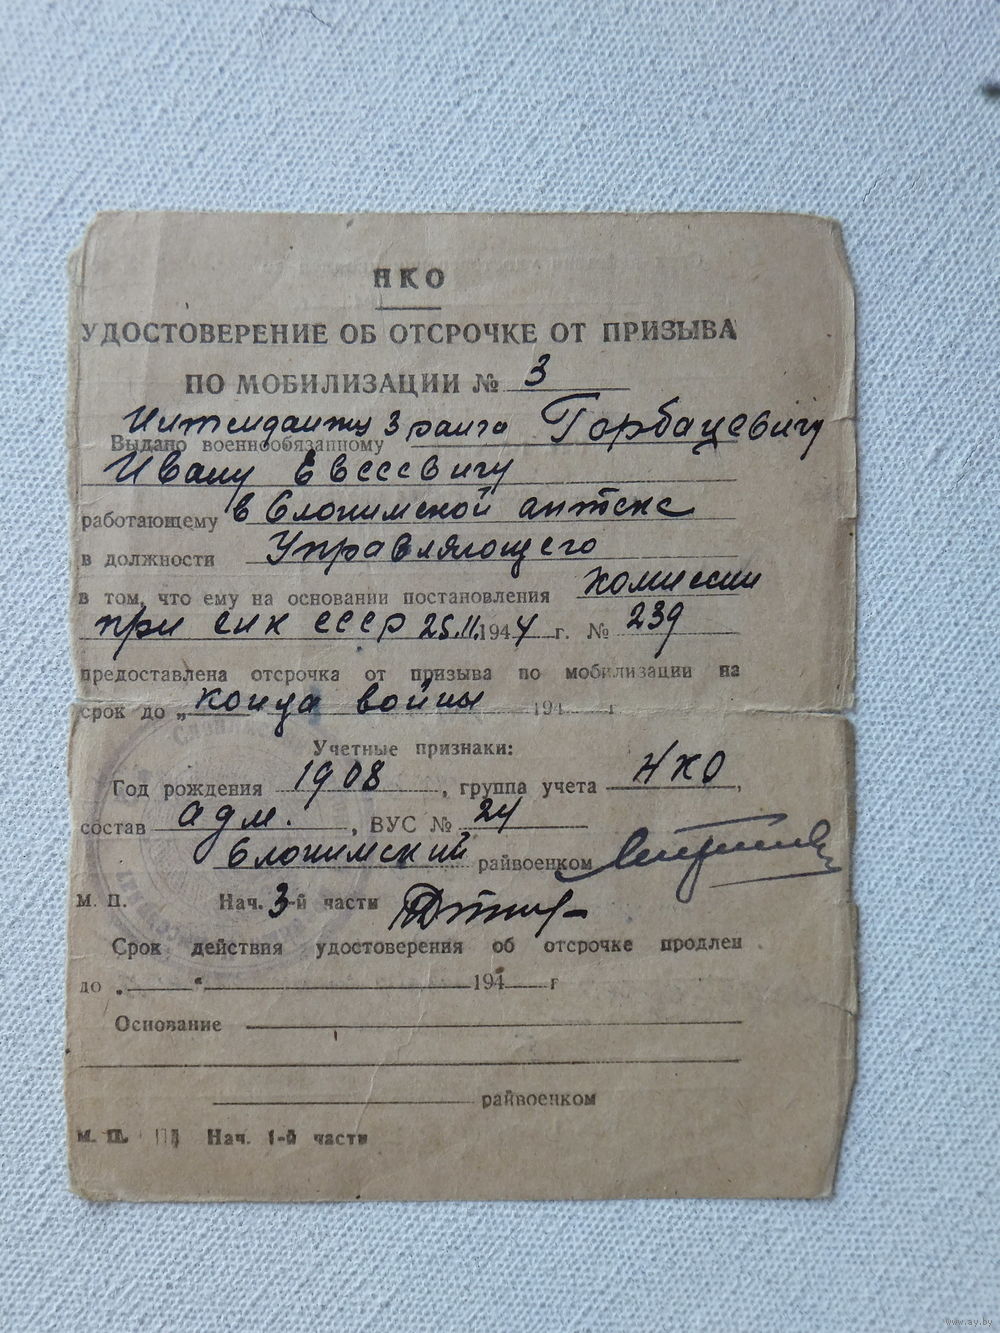 НКО
УДОСТОВЕРЕНИЕ ОБ ОТСРОЧКЕ ОТ ПРИЗЫВА
ПО МОБИЛИЗАЦИИ № 3
Интенданту 3 ранга Горбацевичу
Выдано военнообязанному
Ивану Евсеевичу
работающему в Слонимской аптеке
в должности Управляющего
в том, что ему на основании постановления комиссии
при СНК СССР 25.11.1944 г. № 239
предоставлена отсрочка от призыва по мобилизации на
срок до „ конца войны 194 г
Учетные признаки:
Год рождения 1908, группа учета НКО,
состав адм., ВУС № 24
Слонимский райвоенком
М. П. Нач. 3-й части
Срок действия удостоверения об отсрочке продлен
до „ “ 194 г
Основание
райвоенком
М. П. Нач. 1-й части
www.ay.by